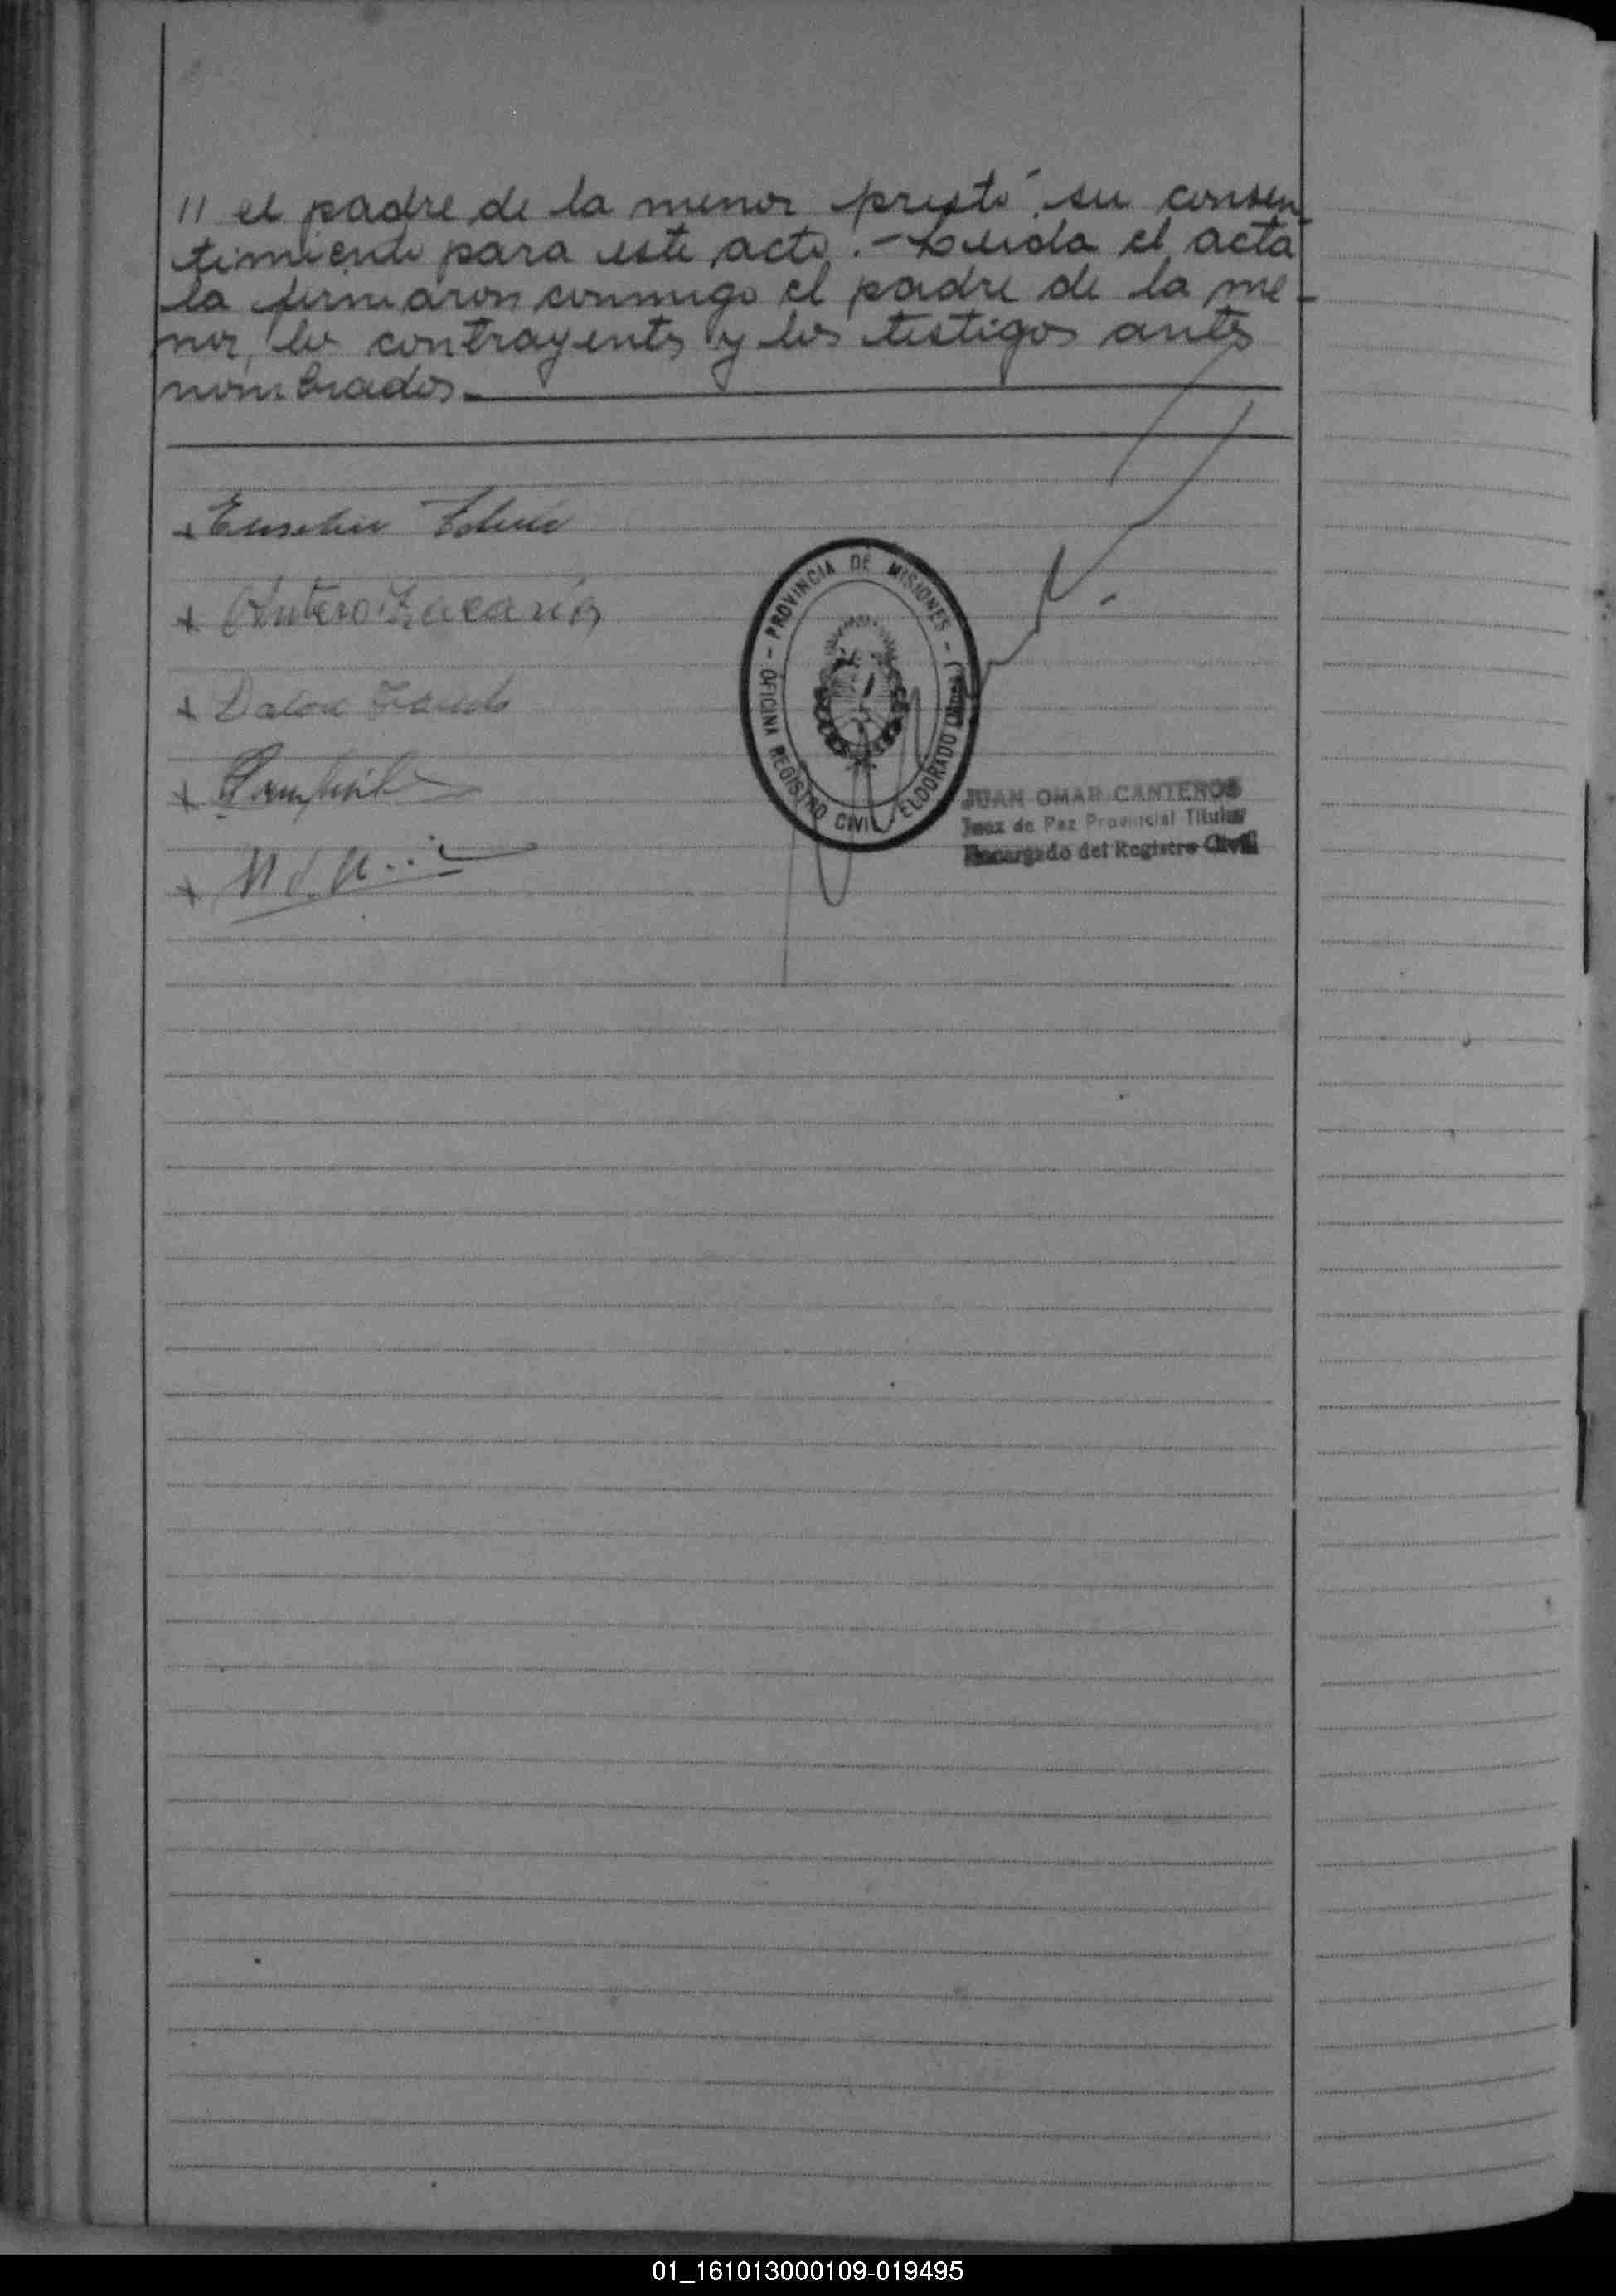 11 el padre de la menor prestó su consen
timiento para este acto.- Leída el acta
la firmaron conmigo el padre de la me-
nor, los contrayentes y los testigos antes
nombrados.
Eusebio
Antero Zacarías
- PROVINCIA DE MISIONES -
OFICINA REGISTRO CIVIL ELDORADO
JUAN OMAR CANTEROS
Juez de Paz Provincial Titular
Encargado del Registro Civil
01_161013000109-019495